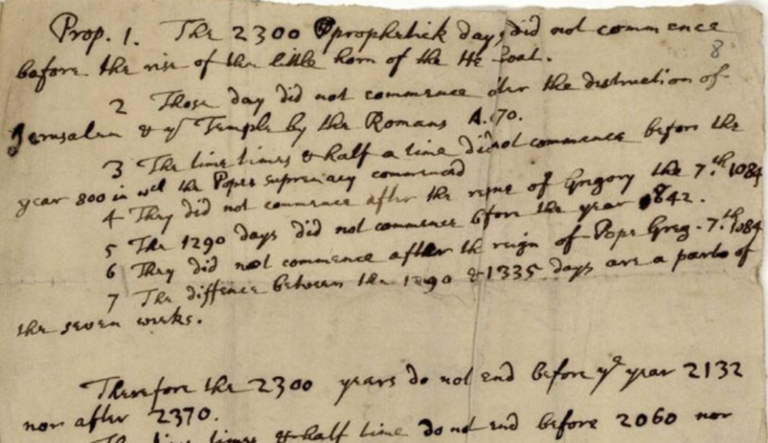 Prop. 1. The 2300 prophetick days did not commence
before the rise of the little horn of the He Goat.
8
2 Those day did not commence after the destruction of
Jerusalem & ye Temple by the Romans A. 70.
3 The time times & half a time did not commence before the
year 800 in wch the Popes supremacy commenced
4 They did not commence after the reigne of Gregory the 7.th 1084
5 The 1290 days did not commence b fore the year 842.
6 They did not commence after the reign of Pope Greg. 7.th 1084
7 The diffence between the 1290 & 1335 days are a parts of
the seven weeks.
Therefore the 2300 years do not end before ye year 2132
nor after 2370.
The time times & half time do not end before 2060 nor